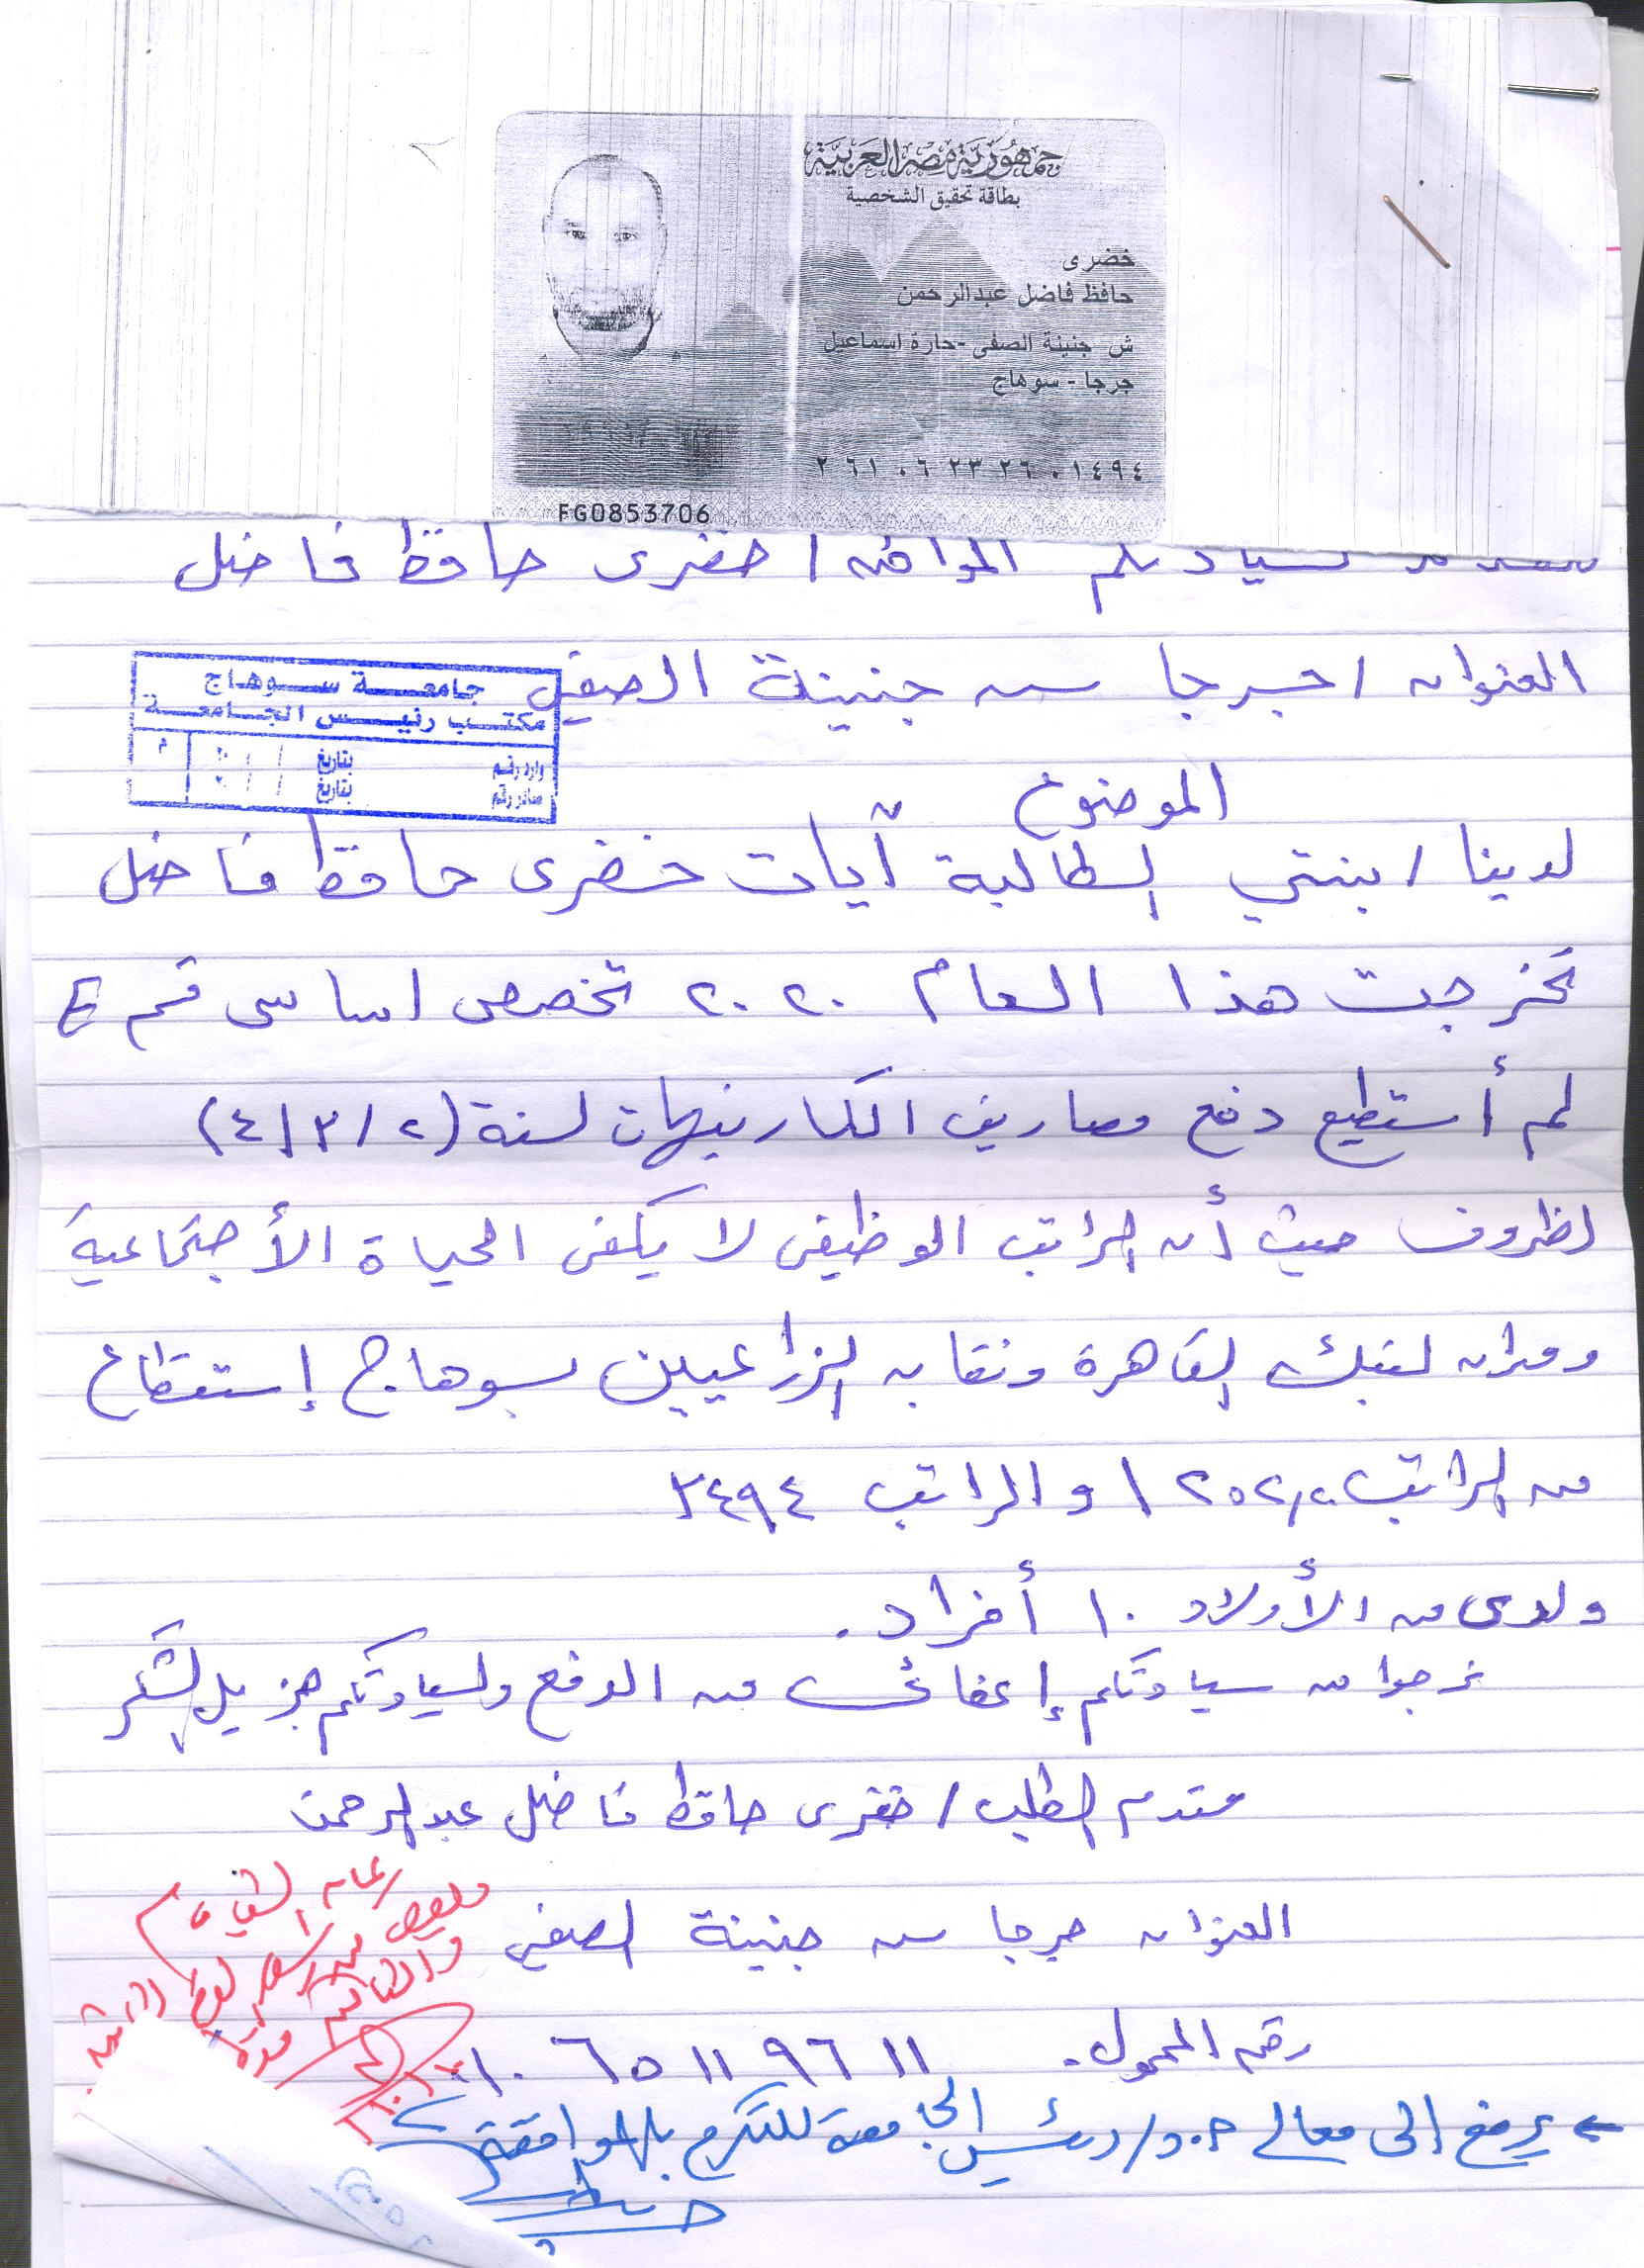 جمهورية مصر العربية
بطاقة تحقيق الشخصية
خضرى
حافظ فاضل عبدالرحمن
ش جنينة الصفى - حارة اسماعيل
جرجا - سوهاج
٢٦١٠٦٢٣٢٦٠١٤٩٤
FG0853706
لسيادتكم المواطن / خضرى حافظ فاضل
العنوان / جرجا ش جنينة الصفى
جامعة سوهاج
مكتب رئيس الجامعة
وارد رقم بتاريخ / / ٢٠ م
صادر رقم بتاريخ
الموضوع
لدينا / بنتي الطالبة آيات خضرى حافظ فاضل
تخرجت هذا العام ٢٠٢٠ تخصص اساسى قسم E
لم أستطيع دفع مصاريف الكارنيهات لسنة (٢/٣/٤)
لظروف حيث أن الراتب الوظيفى لا يكفى الحياة الأجتماعية
ومدان لبنك القاهرة ونقابه الزراعيين بسوهاج إستقطاع
من الراتب والراتب ٣٤٩٤
ولدى من الأولاد ١٠ أفراد.
نرجوا من سيادتكم إعفائى من الدفع ولسيادتكم جزيل الشكر
مقدم الطلب / خضرى حافظ فاضل عبدالرحمن
العنوان جرجا ش جنينة الصفى
رقم المحمول. ٠١٠٦٥١١٩٦١١
رعاية الشباب
يرفع الى معالى أ.د/ رئيس الجامعة للتكرم بالموافقة